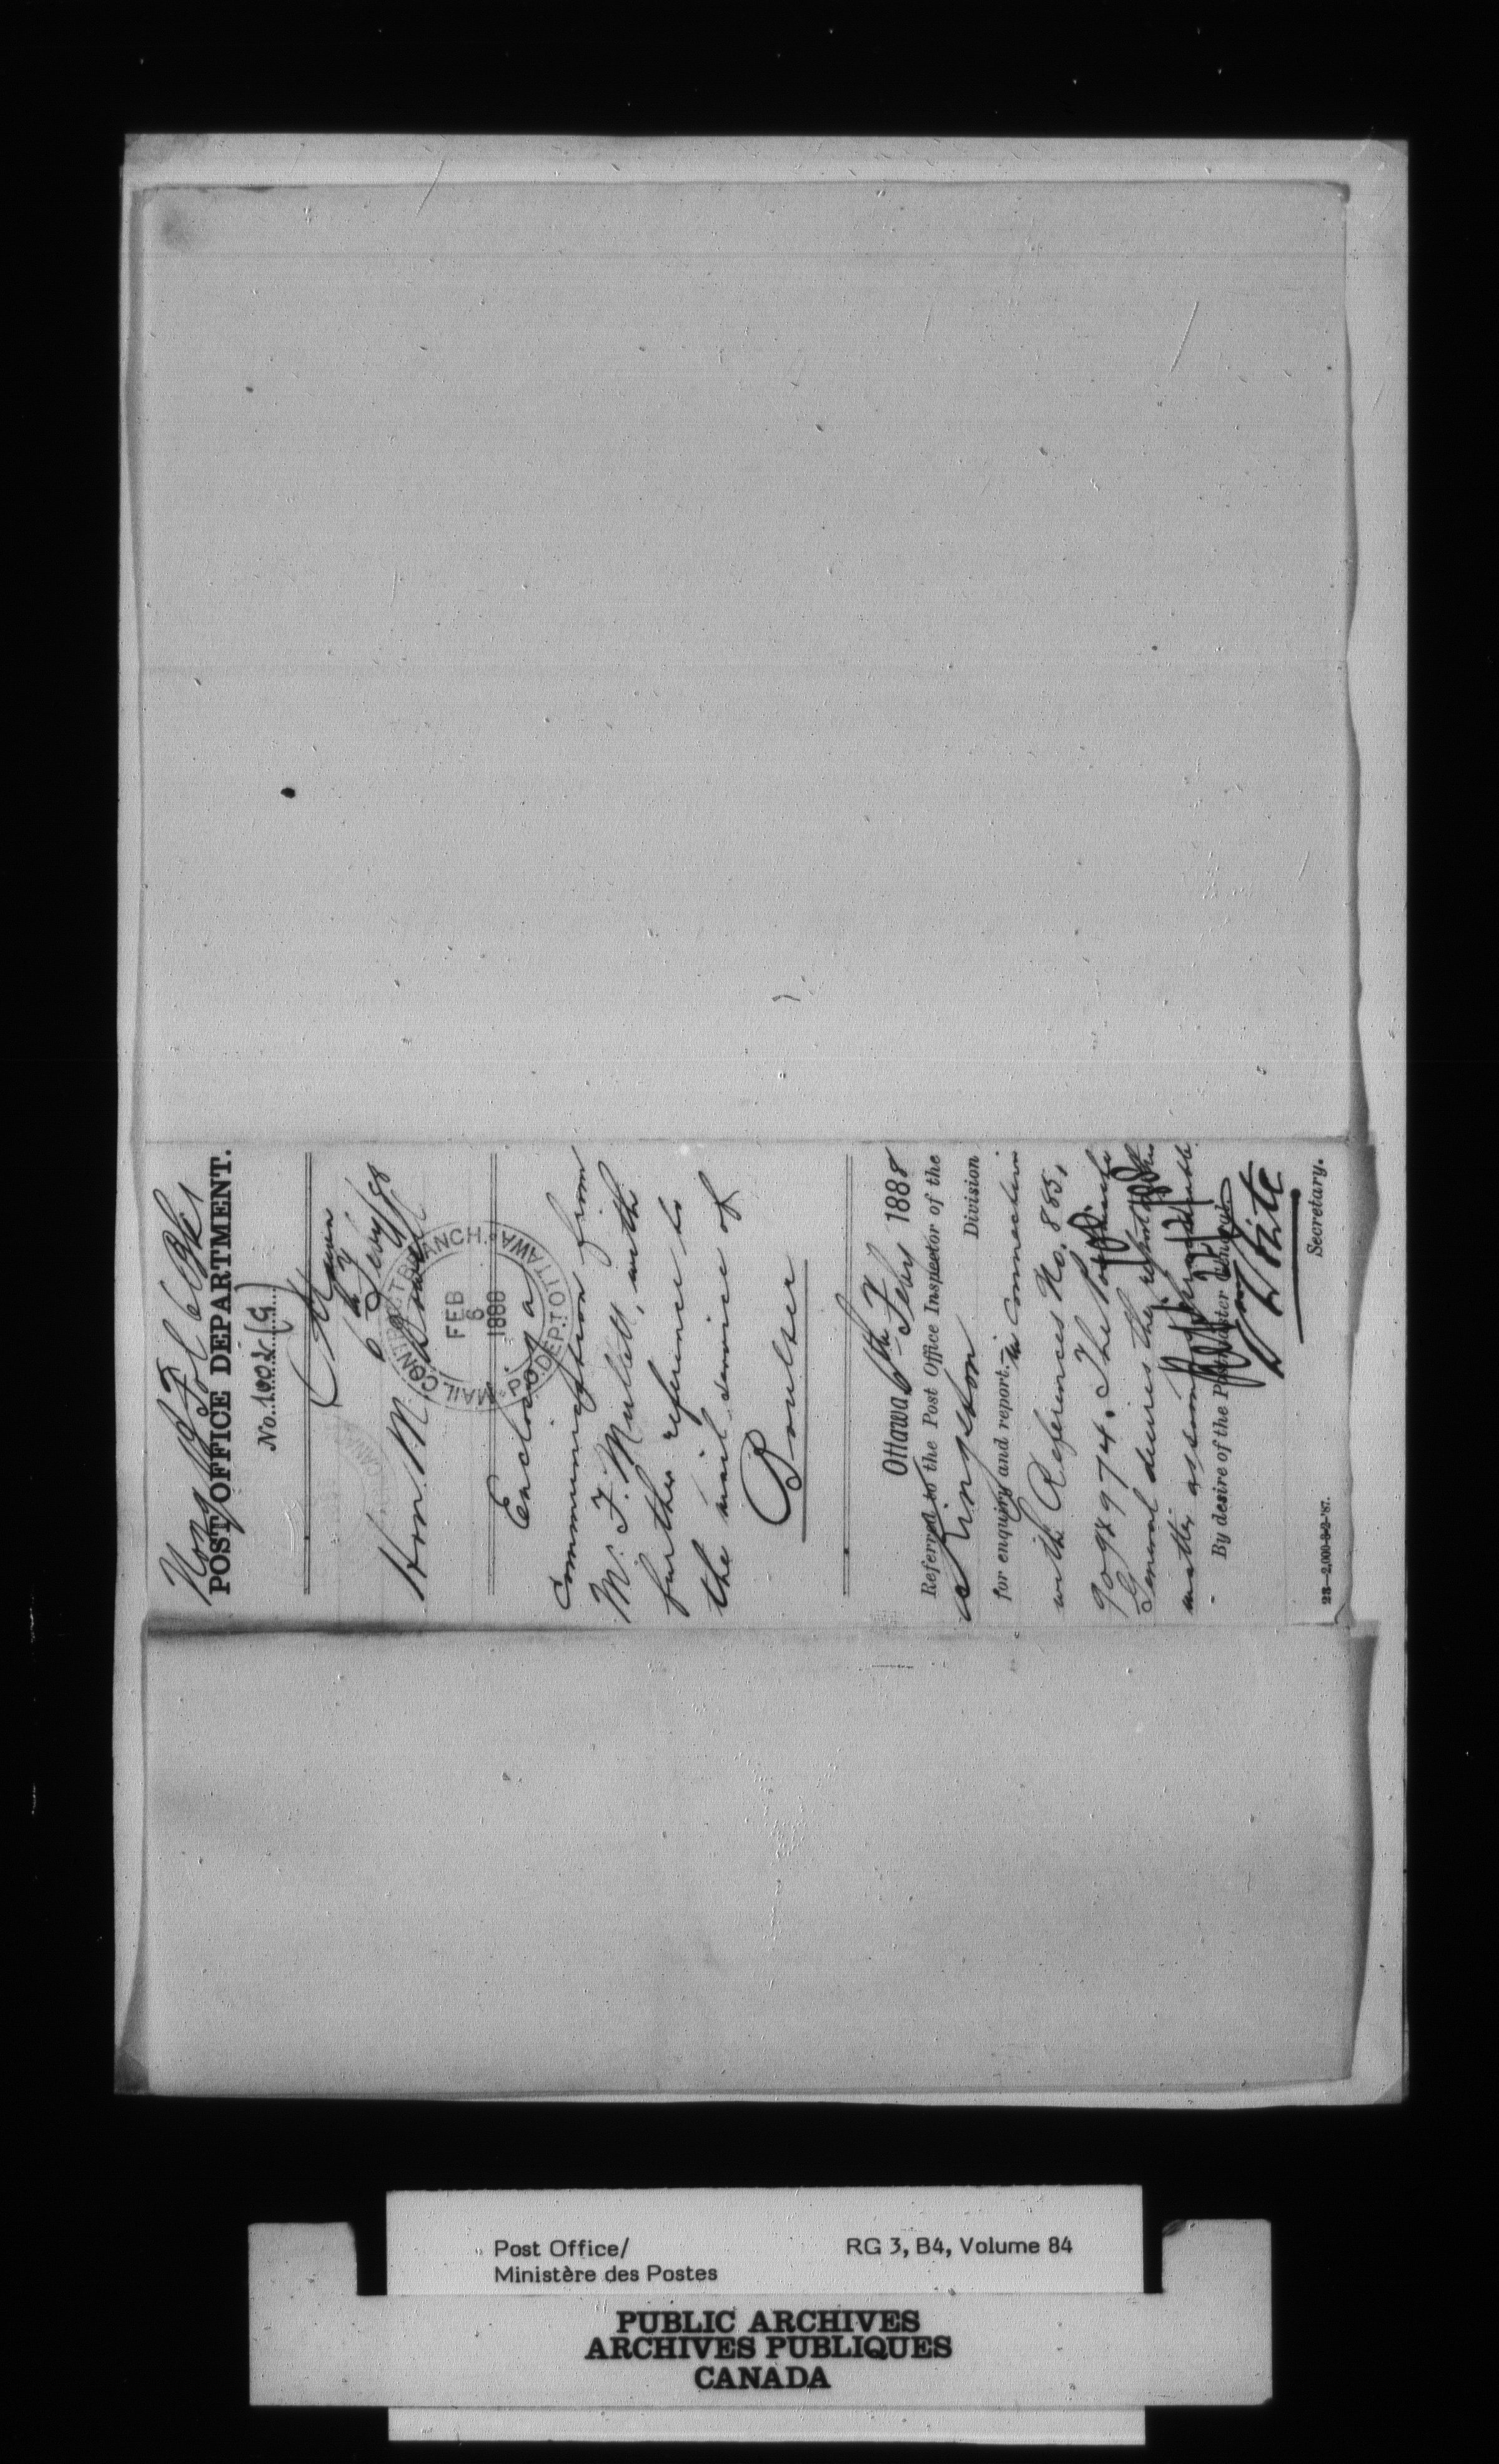 POST OFFICE DEPARTMENT.
No. 1002 (G)
6 Feby/88
Hon. M. Bowell
MAIL CONTRACT BRANCH.
FEB
6
1888
P.O. DEP.T OTTAWA
Enclosing a
communication from
M. F. Mullett, with
further reference to
the mail service of
Boulter
Ottawa 6th Feby 1888
Referred to the Post Office Inspector of the
Kingston Division
for enquiry and report. in connection
with References No. 885,
909 & 974. The Postmaster
General desires the report
matter as soon
By desire of the Postmaster General.
Wm White
Secretary.
23—2,000-3-2-'87.
Post Office/
Ministère des Postes
RG 3, B4, Volume 84
PUBLIC ARCHIVES
ARCHIVES PUBLIQUES
CANADA